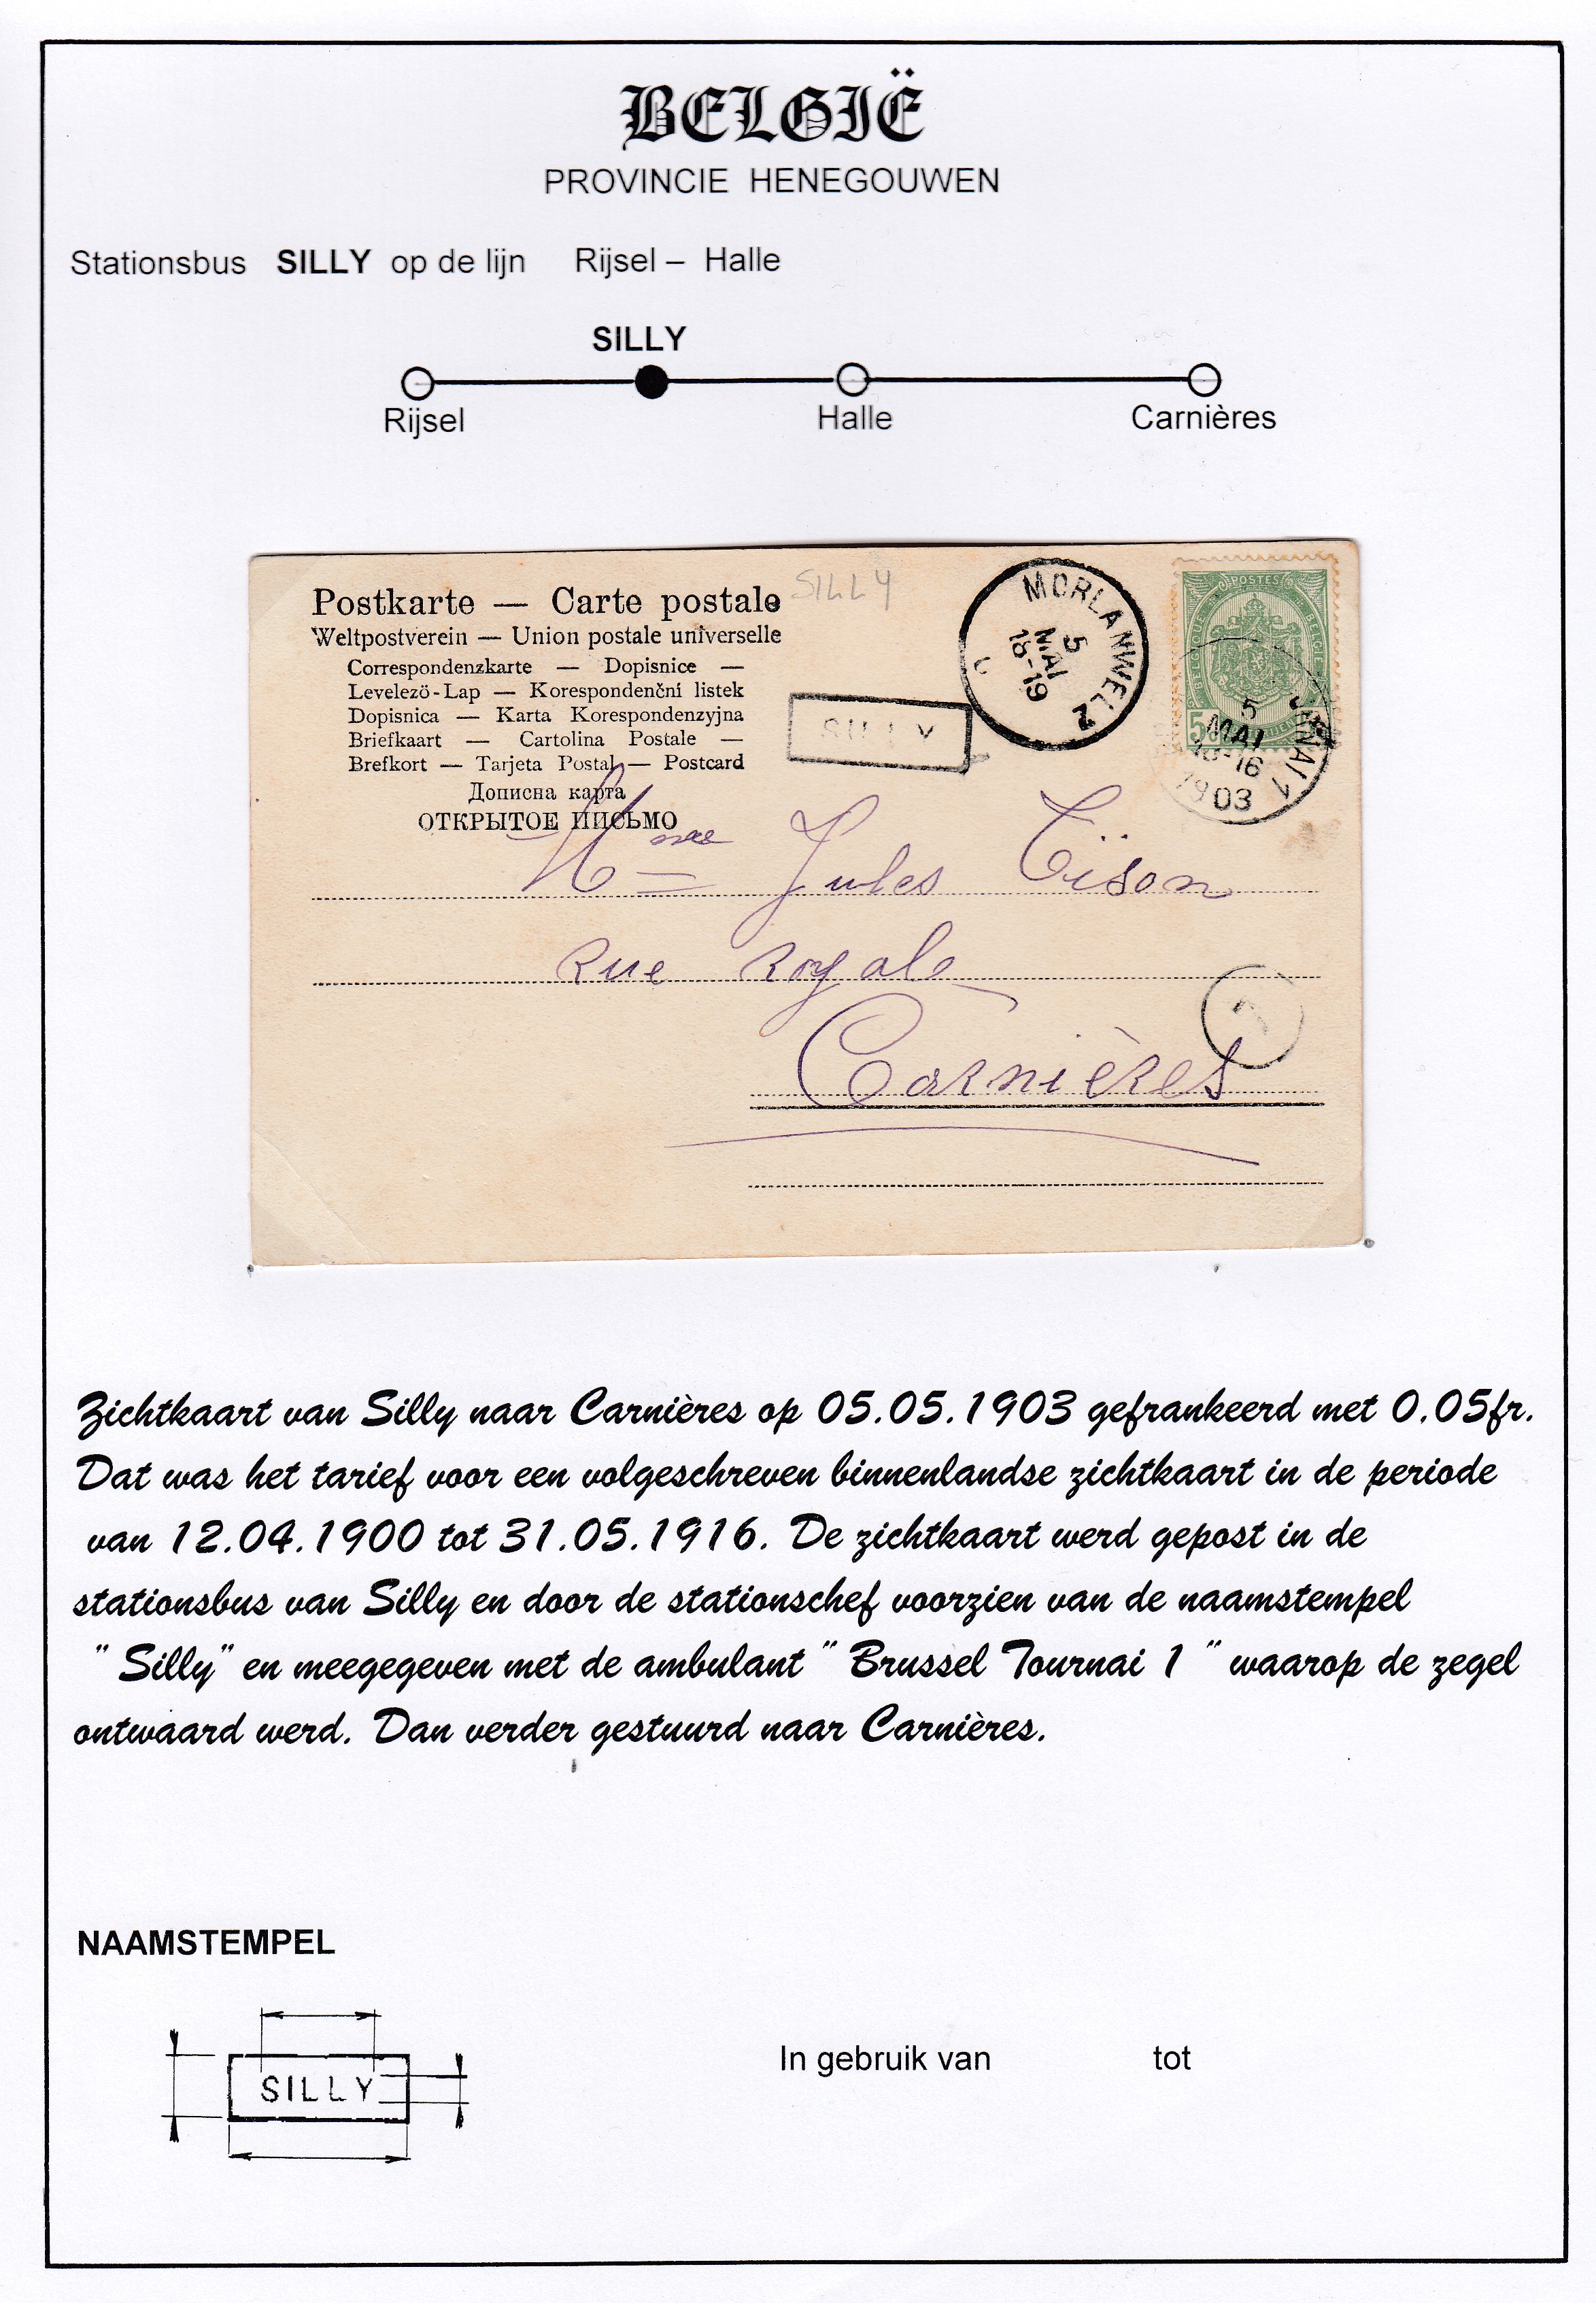 BELGIË
PROVINCIE HENEGOUWEN
Stationsbus SILLY op de lijn Rijsel – Halle
SILLY
Rijsel Halle Carnières
SILLY
Postkarte — Carte postale
Weltpostverein — Union postale universelle
Correspondenzkarte — Dopisnice —
Levelező-Lap — Korespondenční listek
Dopisnica — Karta Korespondenzyjna
Briefkaart — Cartolina Postale —
Brefkort — Tarjeta Postal — Postcard
Дописна карта
ОТКРЫТОЕ ПИСЬМО
SILLY
MORLANWELZ
5
MAI
18-19
POSTES
BELGIQUE
BELGIE
5
5
MAI
-16
1903
NAI 1
Mme Jules Tïson
Rue Royale
Carnières
1
Zichtkaart van Silly naar Carnières op 05.05.1903 gefrankeerd met 0.05fr.
Dat was het tarief voor een volgeschreven binnenlandse zichtkaart in de periode
van 12.04.1900 tot 31.05.1916. De zichtkaart werd gepost in de
stationsbus van Silly en door de stationschef voorzien van de naamstempel
" Silly" en meegegeven met de ambulant " Brussel Tournai 1 " waarop de zegel
ontwaard werd. Dan verder gestuurd naar Carnières.
NAAMSTEMPEL
SILLY
In gebruik van tot